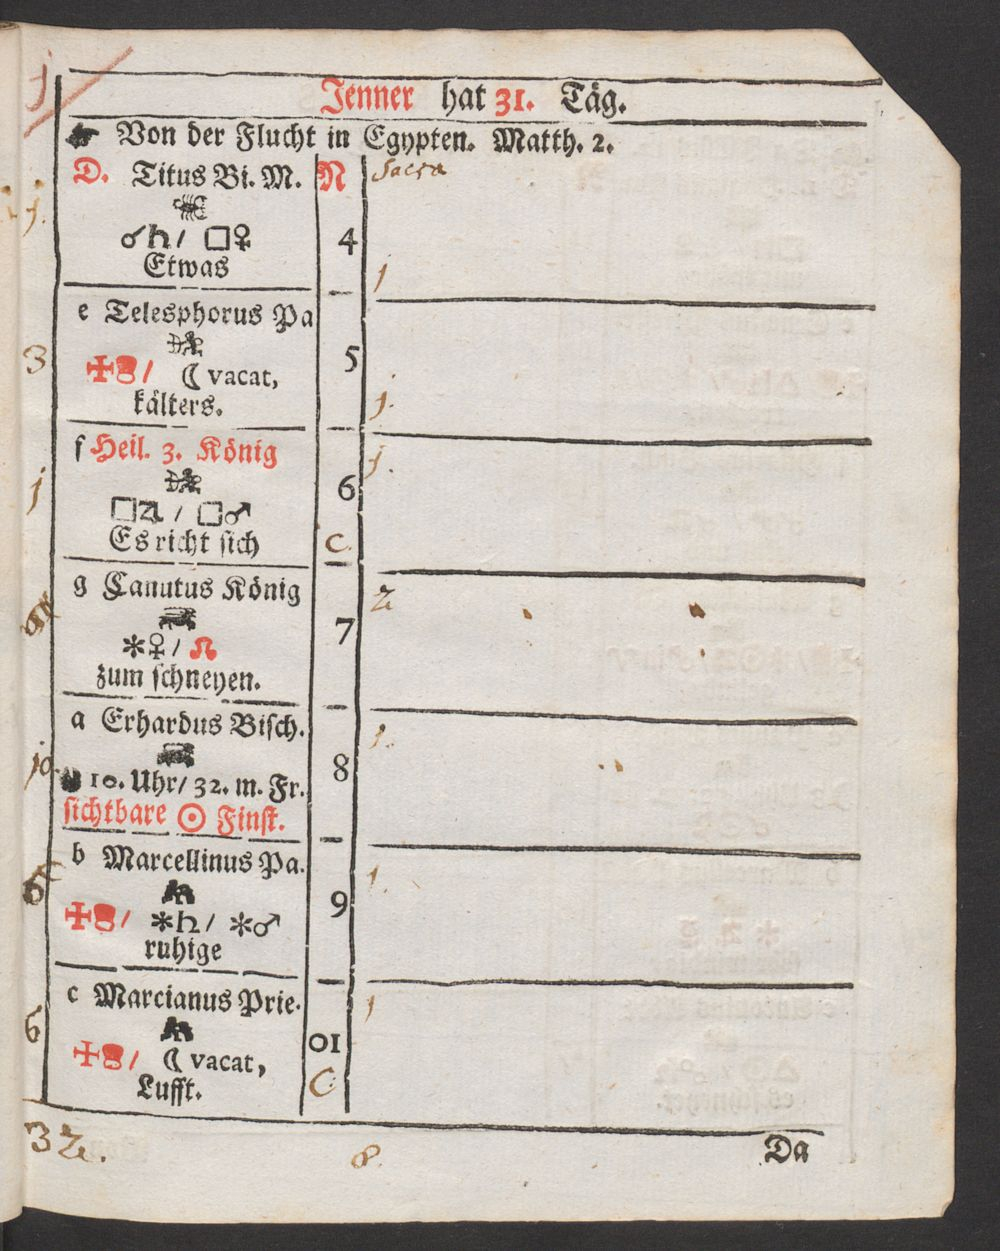 Jenner hat 31. Täg.
Von der Flucht in Egypten. Matth. 2.
D. Titus Bi. M. N Sacra
☌♄/ □♀ 4
Etwas 1
e Telesphorus Pa
3 / ☾ vacat, 5
kälters. 1.
f Heil. 3. König 1.
1 □♃ / □♂ 6
Es richt sich C.
g Canutus König 2
⚹♀/ ☊ 7
zum schneyen.
a Erhardus Bisch. 1.
10 10. Uhr/ 32. m. Fr. 8
sichtbare ☉ Finst.
b Marcellinus Pa. 1.
/ ⚹♄/ ⚹♂ 9
ruhige
c Marcianus Prie. 1
6 / ☾ vacat, 01
Lufft. C
8.
Da